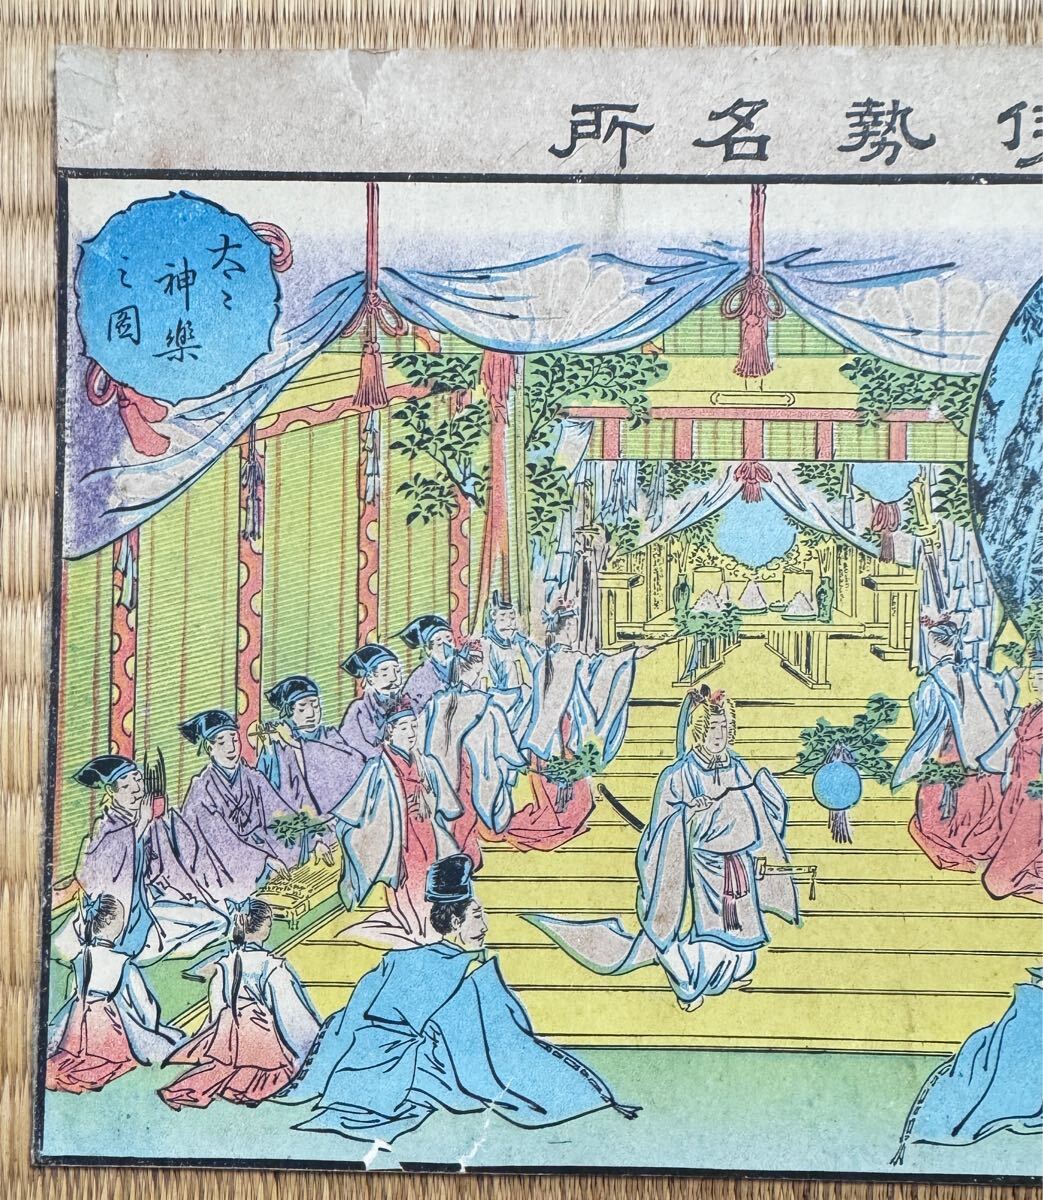 伊勢名所
太々
神樂
之圖